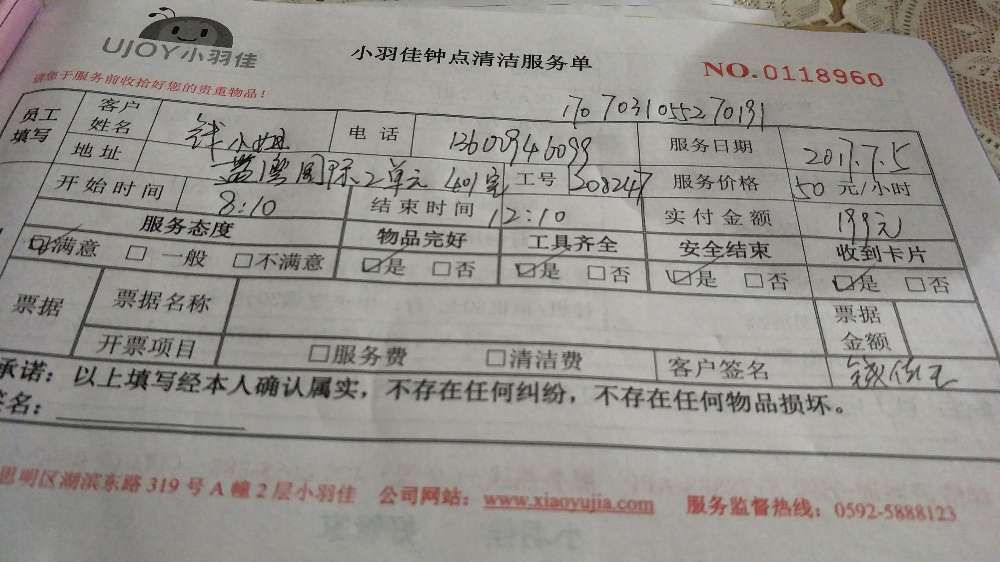 UJOY小羽佳
小羽佳钟点清洁服务单
NO.0118960
请您于服务前收拾好您的贵重物品！
1707031055270191
员工填写 客户姓名 钱小姐 电话 13600946099 服务日期 2017.7.5
地址 蓝湾国际2单元401室 工号 308247 服务价格 50元/小时
开始时间 8:10 结束时间 12:10 实付金额 199元
服务态度 物品完好 工具齐全 安全结束 收到卡片
☑满意 □一般 □不满意 ☑是 □否 ☑是 □否 ☑是 □否 ☑是 □否
票据 票据名称 票据金额
开票项目 □服务费 □清洁费 客户签名
承诺：以上填写经本人确认属实，不存在任何纠纷，不存在任何物品损坏。
签名：
思明区湖滨东路319号A幢2层小羽佳 公司网站：www.xiaoyujia.com 服务监督热线：0592-5888123